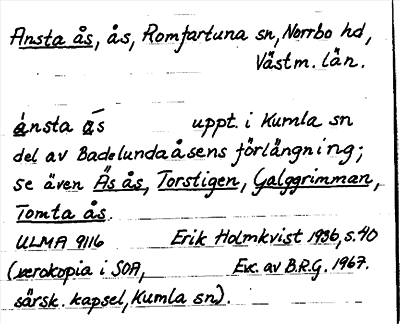 Ansta ås, ås, Romfartuna sn, Norrbo hd,
Västm. län.
ánsta ås uppt. i Kumla sn
del av Badelundaåsens förlängning;
se även Äs ås, Torstigen, Galggrimman,
Tomta ås.
ULMA 9116 Erik Holmkvist 1936, s. 40
(xerokopia i SOA, Exc. av B.R.G. 1967.
särsk. kapsel, Kumla sn).